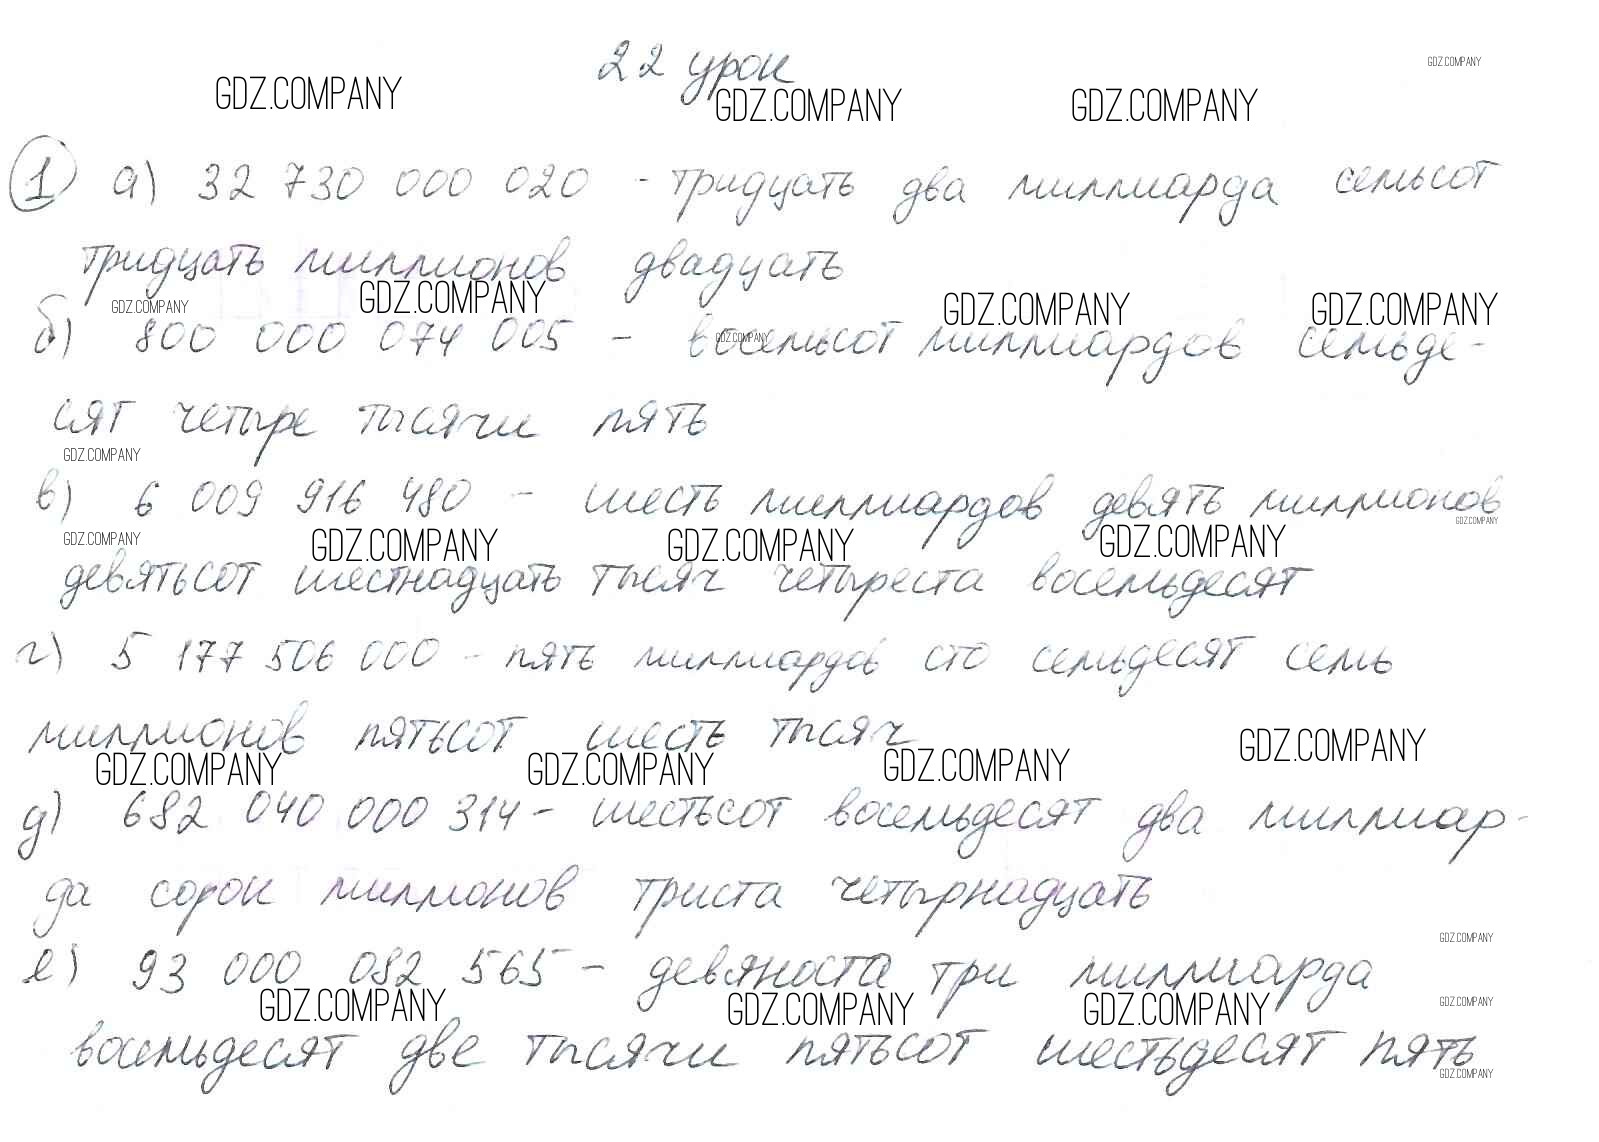 22 урок
GDZ.COMPANY
GDZ.COMPANY
GDZ.COMPANY
GDZ.COMPANY
1 а) 32 730 000 020 - тридцать два миллиарда семьсот
тридцать миллионов двадцать
GDZ.COMPANY
GDZ.COMPANY
GDZ.COMPANY
GDZ.COMPANY
б) 800 000 074 005 - восемьсот миллиардов семьде-
GDZ.COMPANY
сят четыре тысячи пять
GDZ.COMPANY
в) 6 009 916 480 - шесть миллиардов девять миллионов
GDZ.COMPANY
GDZ.COMPANY
GDZ.COMPANY
GDZ.COMPANY
GDZ.COMPANY
девятьсот шестнадцать тысяч четыреста восемьдесят
г) 5 177 506 000 - пять миллиардов сто семьдесят семь
миллионов пятьсот шесть тысяч
GDZ.COMPANY
GDZ.COMPANY
GDZ.COMPANY
GDZ.COMPANY
д) 682 040 000 314 - шестьсот восемьдесят два миллиар-
да сорок миллионов триста четырнадцать
GDZ.COMPANY
е) 93 000 082 565 - девяноста три миллиарда
GDZ.COMPANY
GDZ.COMPANY
GDZ.COMPANY
GDZ.COMPANY
восемьдесят две тысячи пятьсот шестьдесят пять
GDZ.COMPANY